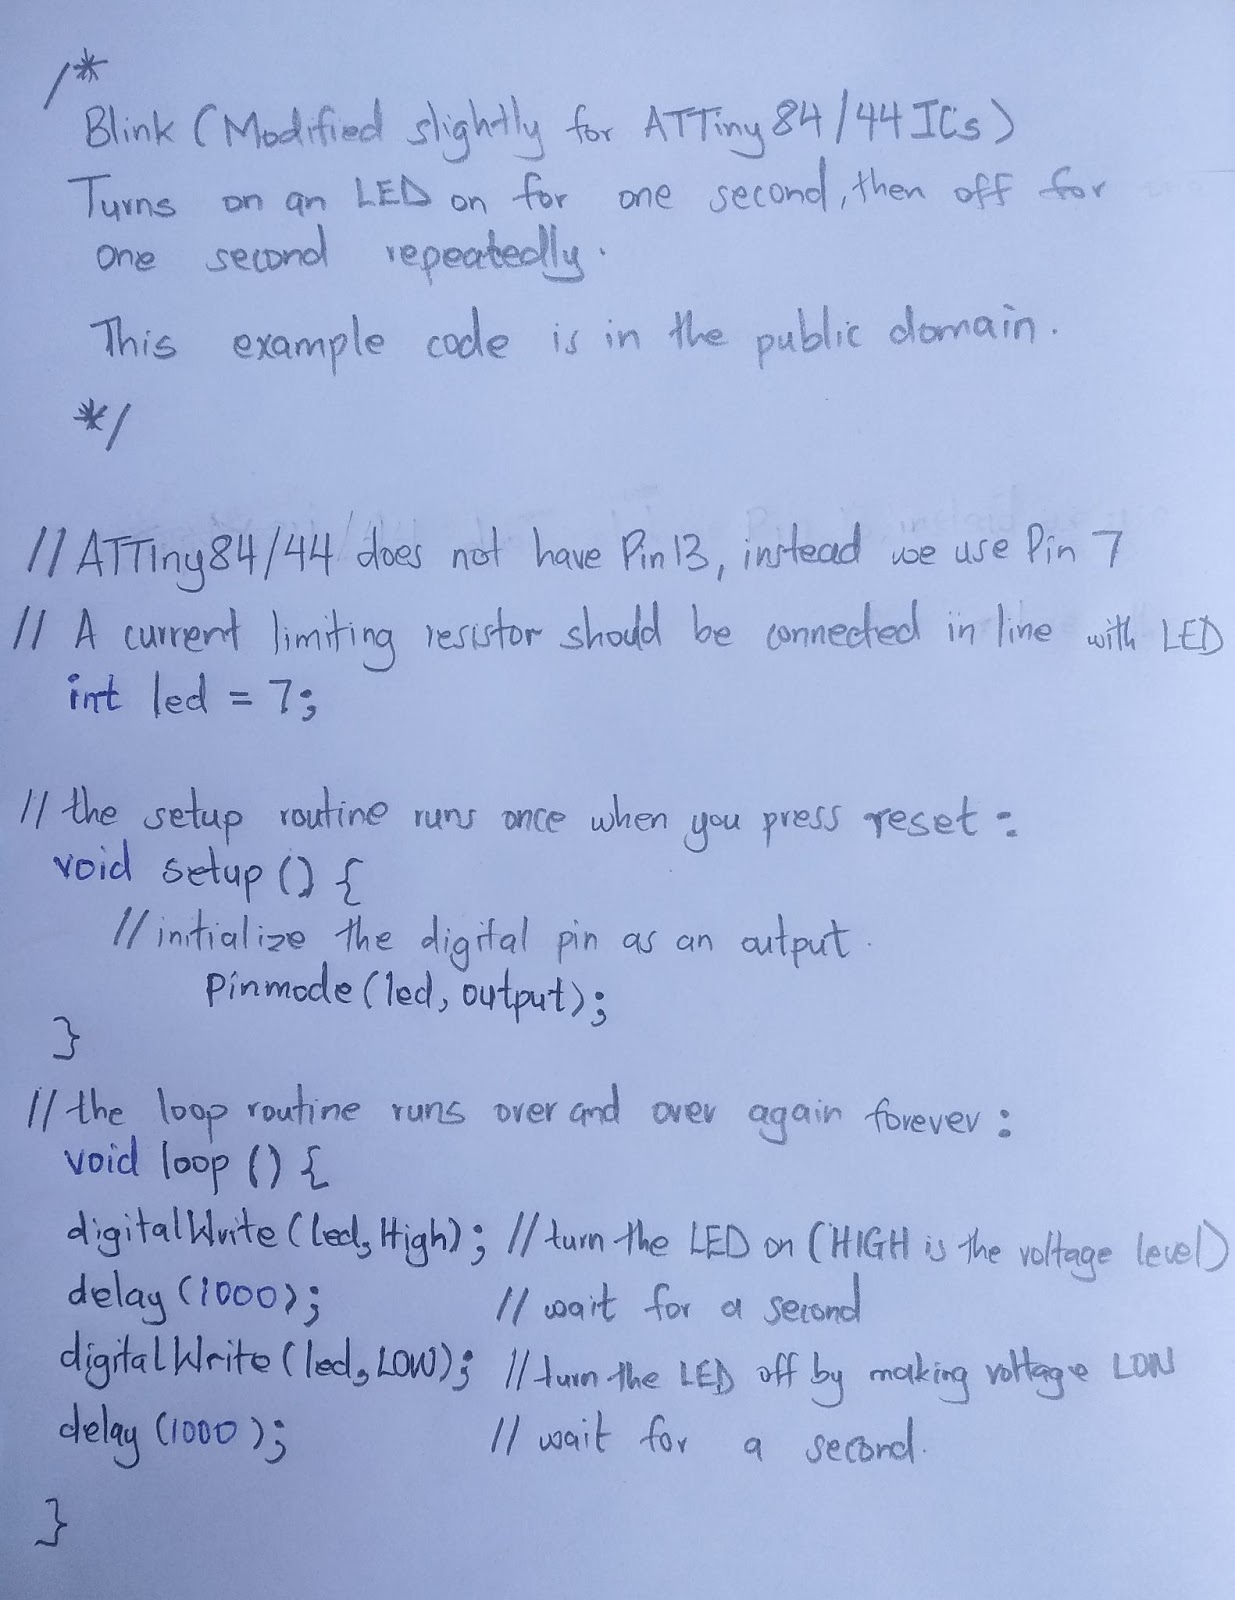 /*
Blink (Modified slightly for ATTiny84/44 ICs)
Turns on an LED on for one second, then off for
one second repeatedly.
This example code is in the public domain.
*/
// ATTiny84/44 does not have Pin 13, instead we use Pin 7
// A current limiting resistor should be connected in line with LED
int led = 7;
// the setup routine runs once when you press reset:
void setup () {
// initialize the digital pin as an output.
Pinmode (led, output);
}
// the loop routine runs over and over again forever:
void loop () {
digitalWrite (led, High); // turn the LED on (HIGH is the voltage level)
delay (1000); // wait for a second
digitalWrite (led, LOW); // turn the LED off by making voltage LOW
delay (1000); // wait for a second.
}